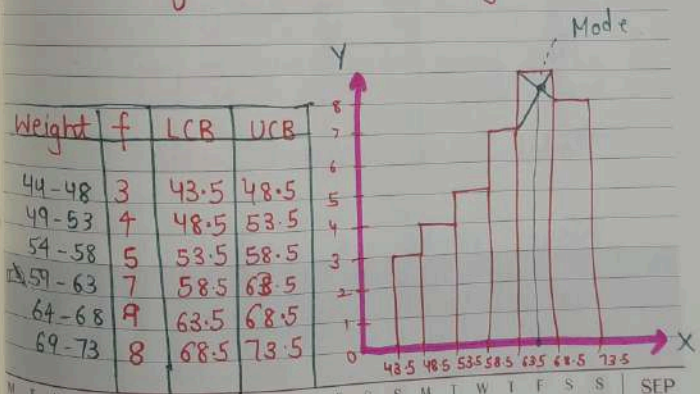 Mode
Y
Weight f LCB UCB
44-48 3 43.5 48.5
49-53 4 48.5 53.5
54-58 5 53.5 58.5
59-63 7 58.5 63.5
64-68 9 63.5 68.5
69-73 8 68.5 73.5
8
7
6
5
4
3
2
1
0
X
43.5 48.5 53.5 58.5 63.5 68.5 73.5
S M T W T F S S SEP